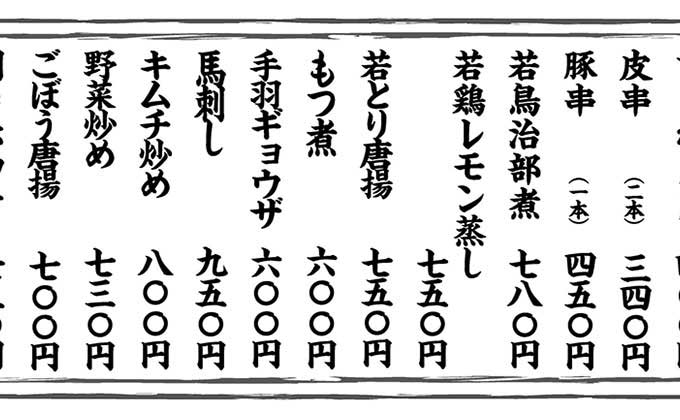 皮串（二本）三四〇円
豚串（一本）四五〇円
若鳥治部煮 七八〇円
若鶏レモン蒸し
七五〇円
若とり唐揚 七五〇円
もつ煮 六〇〇円
手羽ギョウザ 六〇〇円
馬刺し 九五〇円
キムチ炒め 八〇〇円
野菜炒め 七三〇円
ごぼう唐揚 七〇〇円